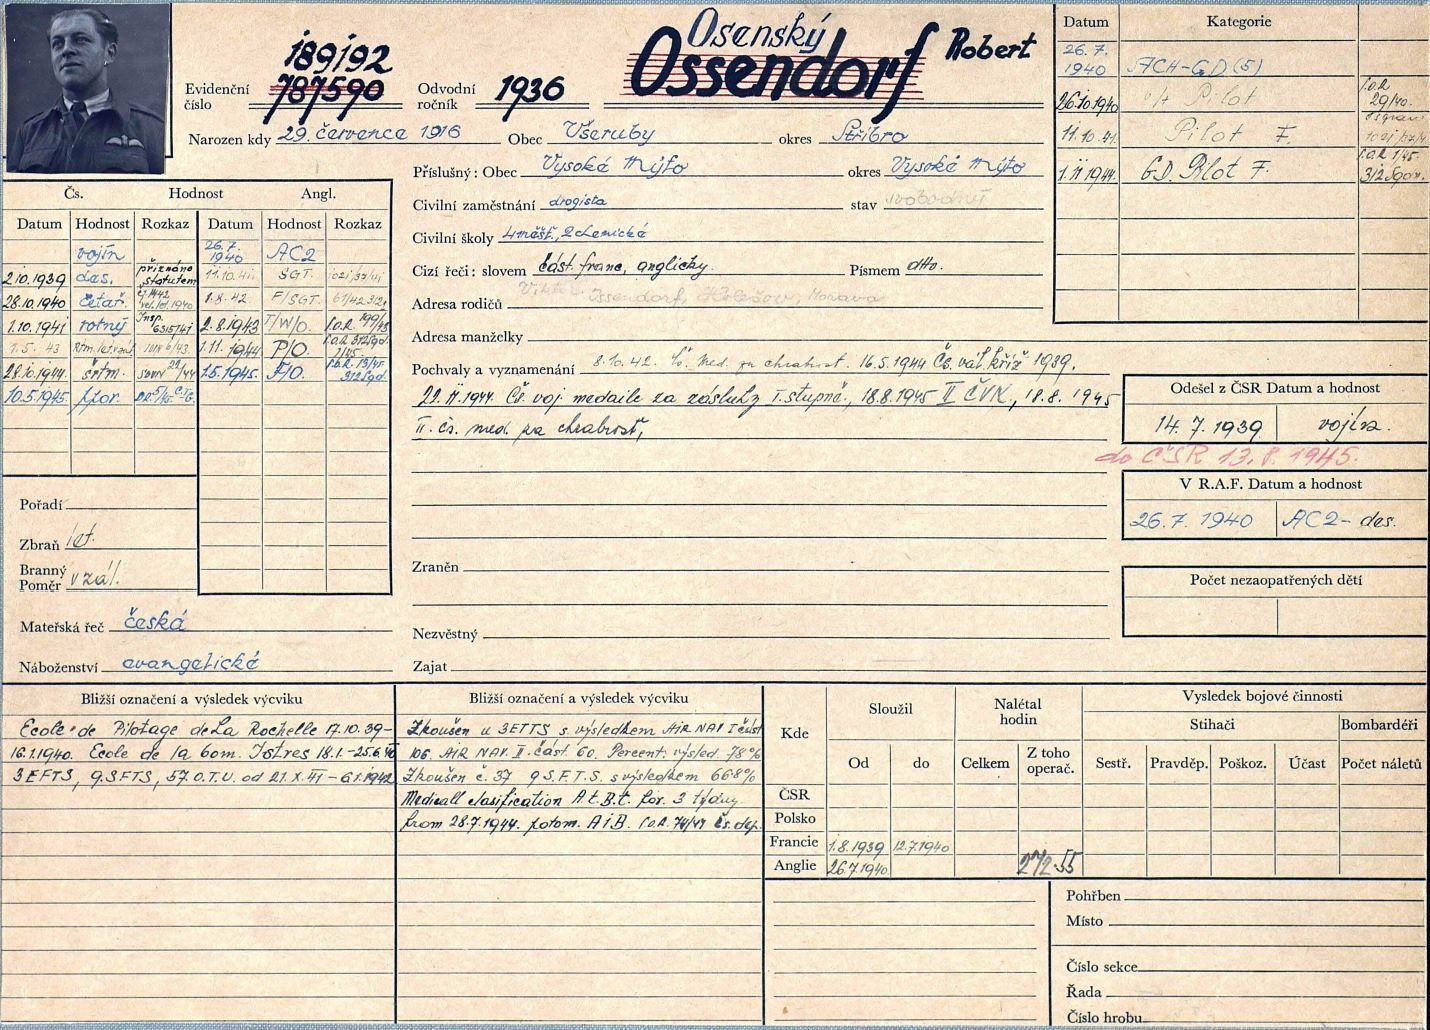 189192
787590
Evidenční číslo
Odvodní ročník 1936
Osenský
Ossendorf Robert
Narozen kdy 29. července 1916 Obec Všeruby okres Stříbro
Příslušný: Obec Vysoké Mýto okres Vysoké Mýto
Civilní zaměstnání drogista stav svobodný
Civilní školy 4 měšť, 2 chemické
Cizí řeči: slovem část. franc, anglicky. Písmem dtto.
Adresa rodičů Ossendorf, Morava
Adresa manželky
Pochvaly a vyznamenání 8.10.42. Čs. med. za chrabrost. 16.5.1944 Čs. vál. kříž 1939,
22.II.1944. Čs. voj medaile za zásluhy I. stupně., 18.8.1945 II ČVK., 18.8.1945
II. čs. med. za chrabrost,
Zraněn
Nezvěstný
Zajat
Datum Kategorie
26.7.1940 ACH-GD (5)
26.10.1940 u/t Pilot 29/40.
11.10.41. Pilot F.
1.II.1944 G.D. Pilot F. 1/45. 312 Sqdn.
Odešel z ČSR Datum a hodnost
14.7.1939 vojín.
do ČSR 13.8.1945.
V R.A.F. Datum a hodnost
26.7.1940 AC2 - des.
Počet nezaopatřených dětí
Čs. Hodnost Angl.
Datum Hodnost Rozkaz Datum Hodnost Rozkaz
vojín 26.7.1940 AC2
2.10.1939 des. přiznáno statutem 11.10.41. SGT.
28.10.1940 četař. 1.8.42 F/SGT.
1.10.1941 rotný Insp. 2.8.1943 T/W/O.
1.5.43 1.11.1944 P/O.
28.10.1944. šrtm. 1.5.1945. F/O.
10.5.1945. ppor.
Pořadí
Zbraň let.
Branný Poměr v zál.
Mateřská řeč česká
Náboženství evangelické
Bližší označení a výsledek výcviku
Ecole de Pilotage de La Rochelle 17.10.39-
16.1.1940. Ecole de la bom. Istres 18.1.-25.6.40
3 EFTS, 9 SFTS, 57 O.T.U. od 21.X.41 - 6.1.1942
Bližší označení a výsledek výcviku
Zkoušen u 3EFTS s výsledkem AIR NAV I část
106. AIR NAV. II. část 60. Percent: výsled. 78%
Zkoušen č. 37 9 S.F.T.S. s výsledkem 66.8%
Medicall clasification A.t.B.t. for. 3 týdny
from 28.7.1944. potom. A I B. čs. dep.
Kde Sloužil Nalétal hodin Vysledek bojové činnosti
Stihači Bombardéři
Od do Celkem Z toho operač. Sestř. Pravděp. Poškoz. Účast Počet náletů
ČSR
Polsko
Francie 1.8.1939 12.7.1940
Anglie 26.7.1940 272.55
Pohřben
Místo
Číslo sekce
Řada
Číslo hrobu